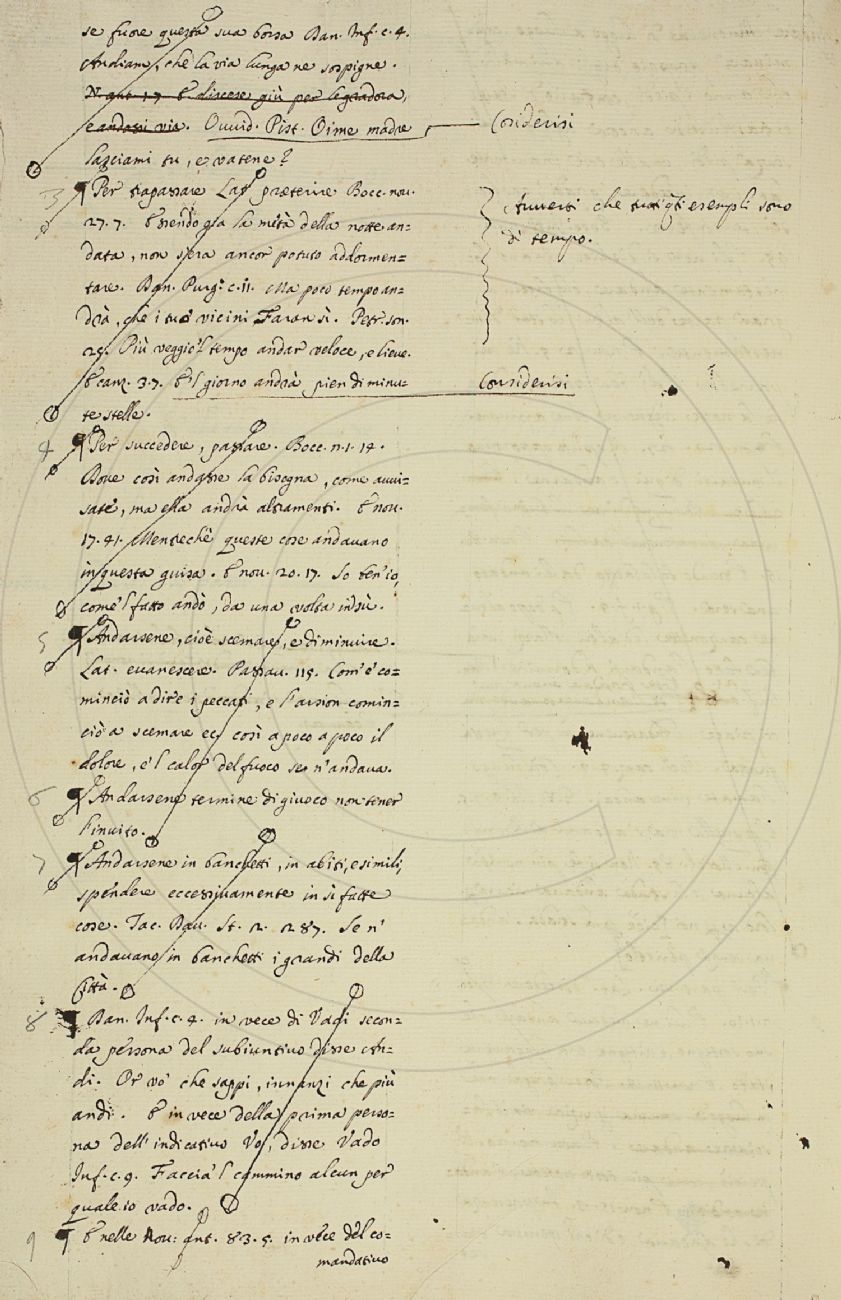 se fuore questa sua borsa Dan. Inf. c. 4.
Andiam, che la via lunga ne sospigne.
N. ant. 17. E discese giù per le gradora,
e andossi via. Ovvid. Pist. Oime madre
Considerisi
lasciami tu, e vatene?
3 ¶ Per trapassare Lat. præterire Bocc. nov.
27. 7. Essendo gia la mità della notte an=
data, non s'era ancor potuto addormen=
tare. Dan. Purg. c. 11. Ma poco tempo an=
drà, che i tuoi vicini Faran sì. Petr. son.
25. Più veggio 'l tempo andar veloce, e lieve.
Avverti che tutti q.ti esempli sono
di tempo.
E canz. 3. 7. E 'l giorno andrà pien di minu=
Considerisi
te stelle.
4 ¶ Per succedere, passare. Bocc. n. 1. 14.
Dove così andasse la bisogna, come avvi=
sate, ma ella andrà altramenti. E nov.
17. 41. Mentrechè queste cose andavano
in questa guisa. E nov. 20. 17. So ben io,
come 'l fatto andò, da una volta insù.
5 ¶ Andarsene, cioè scemare, e diminuire.
Lat. evanescere. Passav. 115. Com' e' co=
minciò a dire i peccati, e l'arsion comin=
ciò a scemare ec. così a poco a poco il
dolore, e 'l calor del fuoco se n'andava.
6 ¶ Andarsene termine di giuoco non tener
l'invito.
7 ¶ Andarsene in banchetti, in abiti, e simili,
spendere eccessivamente in sì fatte
cose. Tac. Dav. St. 2. 287. Se n'
andavano in banchetti i grandi della
Città.
8 ¶ Dan. Inf. c. 4. in vece di Vadi secon=
da persona del subiuntivo disse An=
di. Or vo' che sappi, innanzi che più
andi. E in vece della prima perso=
na dell' indicativo Vo, disse Vado
Inf. c. 9. Faccia 'l cammino alcun per
quale io vado.
9 ¶ E nelle Nov: ant. 83. 5. in vece del co=
mandativo